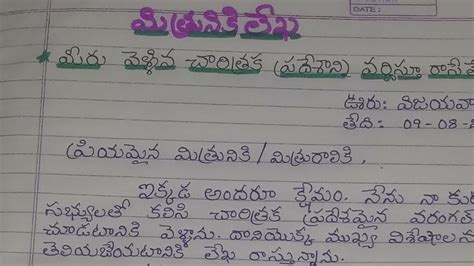 DATE:
మిత్రునికి లేఖ
* మీరు వెళ్లిన చారిత్రక ప్రదేశాన్ని వర్ణిస్తూ
ఊరు: విజయవా
తేది: 09-08-
ప్రియమైన మిత్రునికి / మిత్రురాలికి,
ఇక్కడ అందరూ క్షేమం. నేను నా కు
సభ్యులతో కలిసి చారిత్రక ప్రదేశమైన వరంగ
చూడటానికి వెళ్లాను. దానియొక్క ముఖ్య విశేషాల
తెలియజేయటానికి లేఖ రాస్తున్నాను.